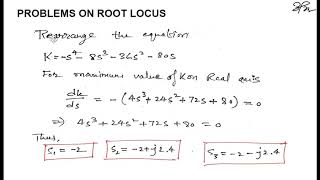 PROBLEMS ON ROOT LOCUS
Rearrange the equation
K = -s⁴ - 8s³ - 36s² - 80s
For maximum value of K on Real axis
dk/ds = -(4s³ + 24s² + 72s + 80) = 0
⇒ 4s³ + 24s² + 72s + 80 = 0
Thus,
S₁ = -2 S₂ = -2 + j2.4 S₃ = -2 - j2.4